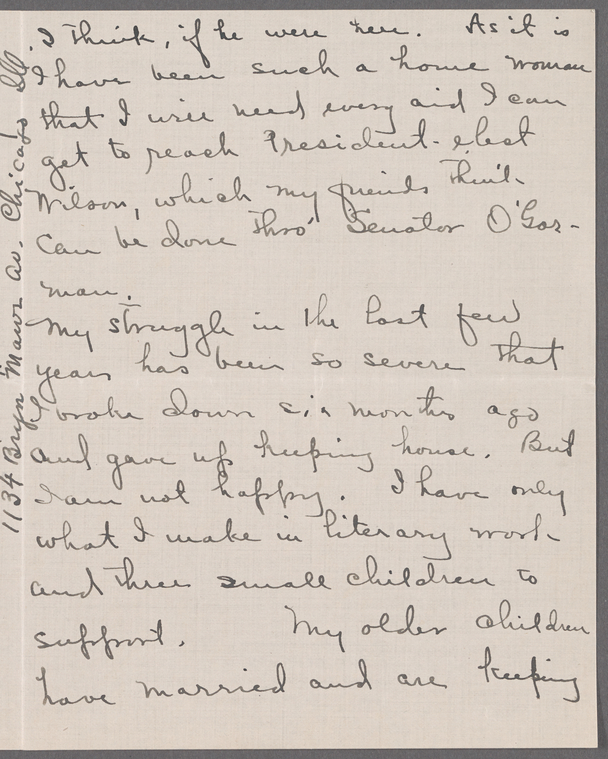 I think, if he were here. As it is
I have been such a home woman
that I will need every aid I can
get to reach President-elect
Wilson, which my friends think
can be done thro' Senator O'Gor-
man.
My struggle in the last few
years has been so severe that
I broke down six months ago
and gave up keeping house. But
I am not happy. I have only
what I make in literary work
and three small children to
support. My older children
have married and are keeping
1134 Bryn Mawr av. Chicago Ill